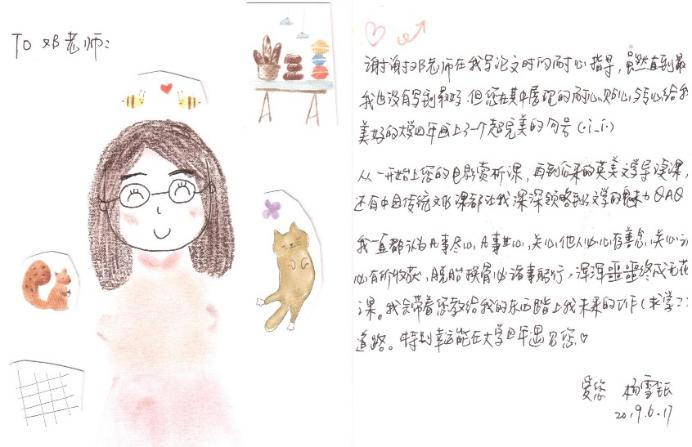 To 邓老师:
谢谢邓老师在我写论文时的耐心指导,虽然直到最
我也没有写到最好,但您在其中展现的耐心、贴心、
美好的大学四年画上了一个超完美的句号
从一开始上您的电影赏析课,再到后来的英美文学导读课,
还有中国传统文化课都让我深深领略到文学的魅力 QAQ
我一直都认为凡事尽心,凡事
必有所收获,
课。我会带着您教给我的东西踏上我未来的工作(求学
道路。特别幸运能在大学四年遇见您♡
爱您 杨雪钰
2019.6.17